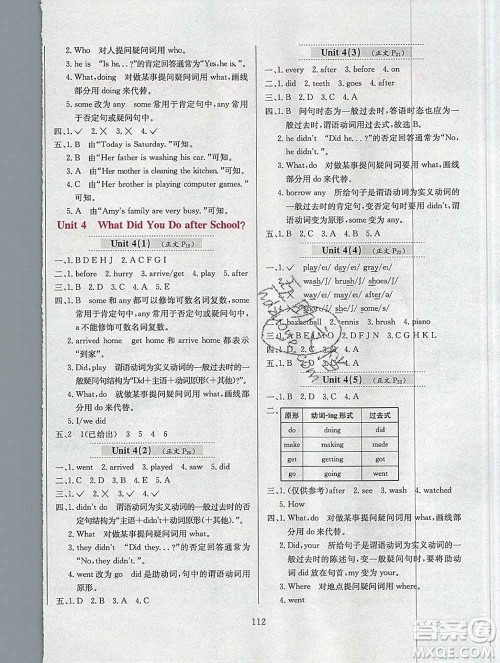 2. Who 对人提问疑问词用 who。
3. he is “Is he...?”的肯定回答通常为“Yes, he is.”
4. What, doing 对做某事提问疑问词用 what, 画线部分用 doing 来代替。
5. some 改为 any some 常用于肯定句中, any 常用于否定句或疑问句中。
四、1. ✓ 2. ╳ 3. ╳ 4. ✓
五、1. B 由“Today is Saturday.”可知。
2. A 由“Her father is washing his car.”可知。
3. A 由“Her mother is cleaning the kitchen.”可知。
4. A 由“Her brother is playing computer games.”可知。
5. A 由“Amy's family are very busy.”可知。
Unit 4 What Did You Do after School?
Unit 4(1) (正文 P19)
一、1. BDEHJ 2. ACFGI
二、1. before 2. hurry 3. arrive 4. get
三、1. ✓ 2. ╳ 3. ✓ 4. ╳
四、1. B some 和 any 都可以修饰可数名词复数。
2. B some 和 any 都可以修饰可数名词复数, a 不能修饰可数名词复数。
3. arrived home get home 和 arrive home 都表示“到家”。
4. Did, play 谓语动词为实义动词的一般过去时的一般疑问句结构为“Did＋主语＋动词原形 (＋其他)?”
5. What, do 就做某事提问疑问词用 what, 画线部分用 do 来代替。
6. I/we did
五、2 1(已给出) 3 5 4 6
Unit 4(2) (正文 P20)
一、1. went 2. arrived 3. played 4. did
二、1. A 2. D 3. B 4. C
三、1. ✓ 2. ╳ 3. ╳ 4. ✓ 5. ✓
四、1. didn't do 谓语动词为实义动词的一般过去时的否定句结构为“主语＋didn't＋动词原形(＋其他).”
2. What, do 就做某事提问疑问词用 what, 画线部分用 do 来代替。
3. they didn't “Did they...?”的否定回答通常为“No, they didn't.”
4. went 改为 go did 后的动词, 句中的谓语动词用原形。
五、1. C 2. D 3. B 4. A
Unit 4(3) (正文 P21)
一、1. every 2. after 3. did 4. before
二、1. B 2. D 3. C 4. A
三、1. ✓ 2. ╳ 3. ╳ 4. ╳
四、1. B 问句时态为一般过去时, 答语时态也应为一般过去时, 所以谓语动词用过去式, 故选B。
2. he didn't “Did he...?”的否定回答通常为“No, he didn't.”
3. What, do 对做某事提问疑问词要用 what, 画线部分用 do 来代替。
4. borrow any 所给句子是谓语动词为实义动词的一般过去时的肯定句, 变否定句时要用助动词 didn't, 谓语动词用原形。
五、1. B 2. D 3. A 4. C
Unit 4(4) (正文 P22)
一、1. ✓ play/eɪ/ day/eɪ/ gray/eɪ/
四、1. D 2. C 3. A 4. B
Unit 4(5) (正文 P22)
原形 动词-ing 形式 过去式
do doing did
make making made
get getting got
go going went
二、1. (仅供参考) after 2. see 3. before 4. watch
5. How
三、1. ╳ 2. ╳ 3. ✓ 4. ╳ 5. ✓
四、1. What, do 对做某事提问疑问词用 what, 画线部分用 do 来代替。
2. Did, your 所给句子是谓语动词为实义动词的一般过去时的陈述句, 变一般疑问句时, 要用助动词 did 引导, 谓语动词用原形。
3. Where 对地点提问疑问词用 where。
4. went
112
作业精灵